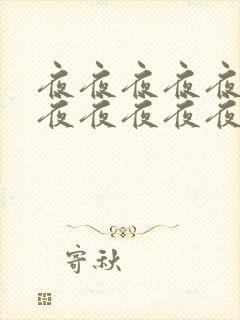 夜夜夜夜夜
夜夜夜夜夜
寄秋